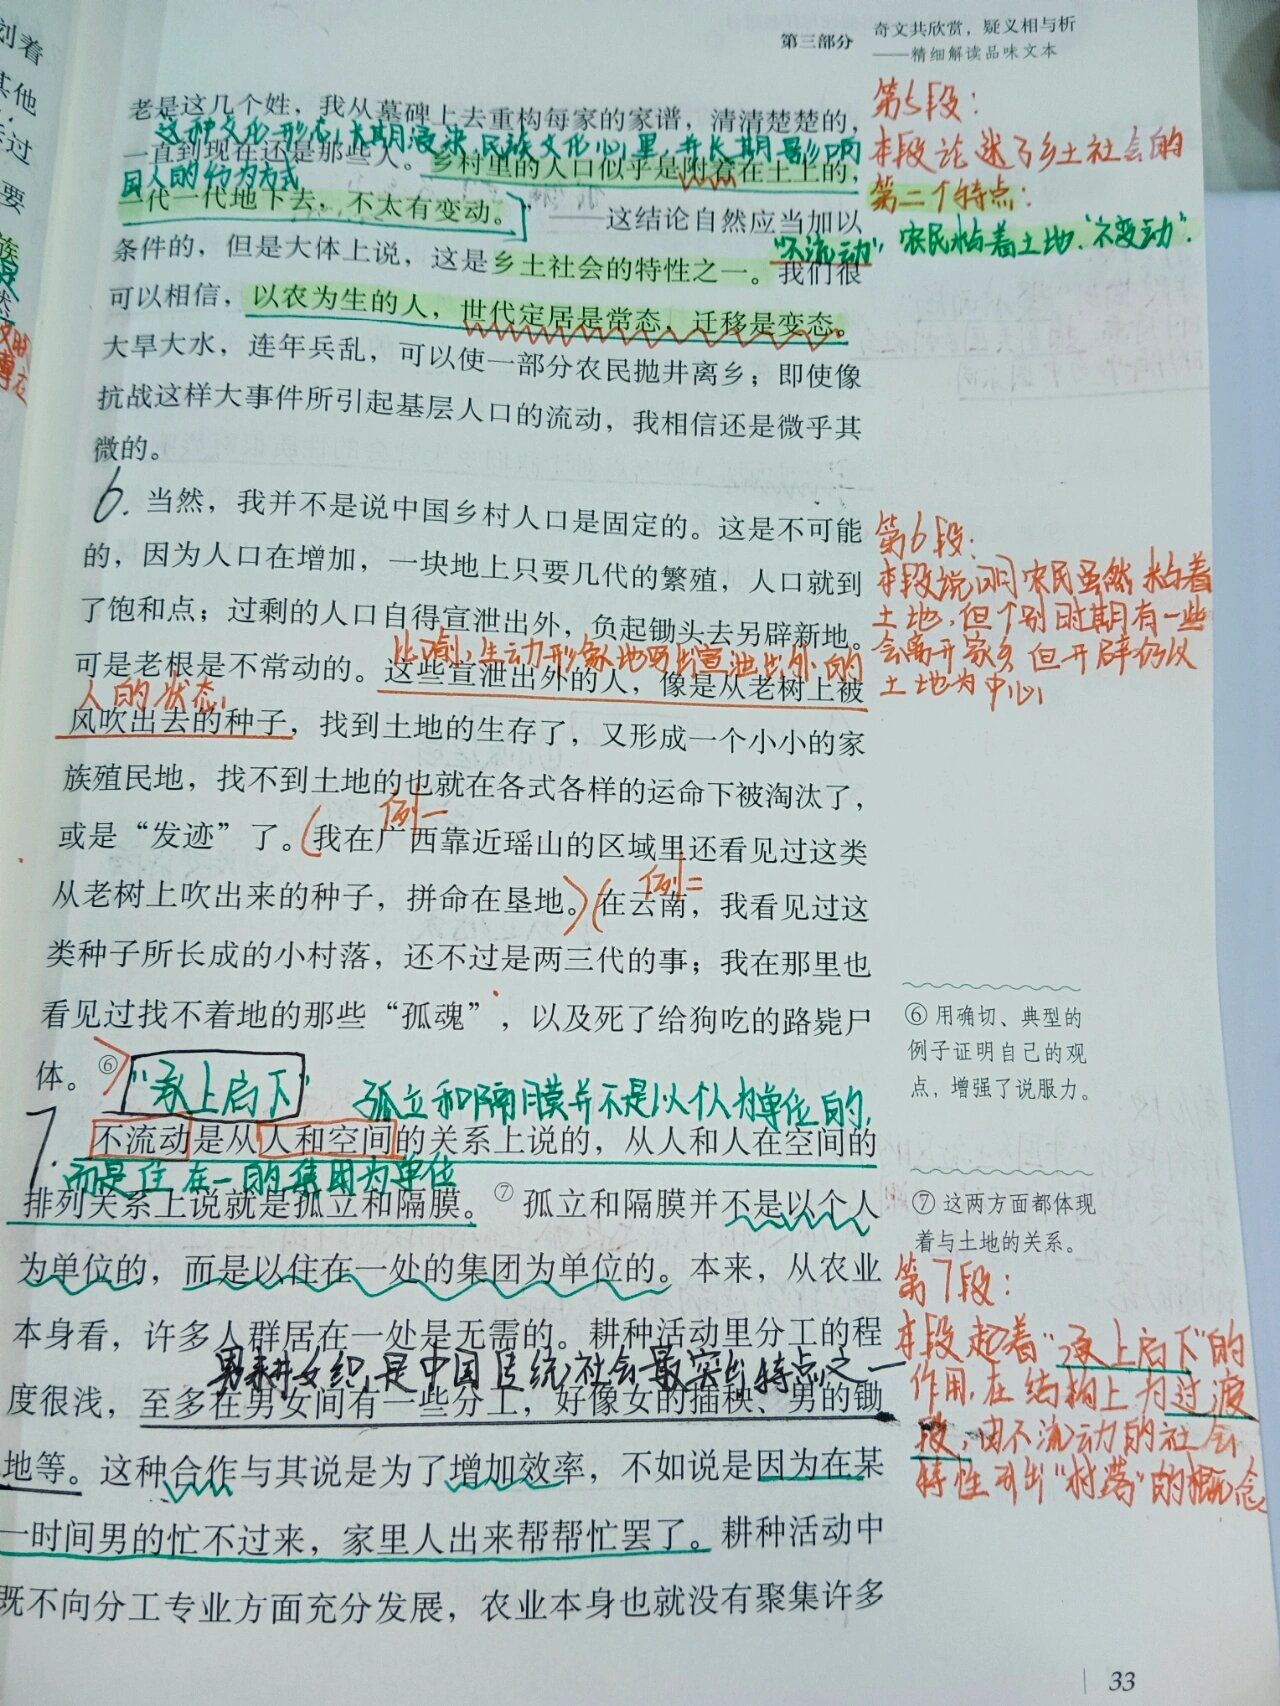 第三部分 奇文共欣赏，疑义相与析
——精细解读品味文本
老是这几个姓，我从墓碑上去重构每家的家谱，清清楚楚的，
这种文化形态，长期浸染民族文化心里，并长期影响
一直到现在还是那些人。乡村里的人口似乎是附着在土上的，
国人的行为方式
一代一代地下去，不太有变动。”——这结论自然应当加以
条件的，但是大体上说，这是乡土社会的特性之一。我们很
可以相信，以农为生的人，世代定居是常态，迁移是变态。
大旱大水，连年兵乱，可以使一部分农民抛井离乡；即使像
抗战这样大事件所引起基层人口的流动，我相信还是微乎其
微的。
第5段：
本段论述了乡土社会的
第二个特点：
“不流动” 农民粘着土地，“不变动”.
6. 当然，我并不是说中国乡村人口是固定的。这是不可能
的，因为人口在增加，一块地上只要几代的繁殖，人口就到
了饱和点；过剩的人口自得宣泄出外，负起锄头去另辟新地。
比喻，生动形象地写出宣泄出外的
可是老根是不常动的。这些宣泄出外的人，像是从老树上被
人的状态
风吹出去的种子，找到土地的生存了，又形成一个小小的家
族殖民地，找不到土地的也就在各式各样的运命下被淘汰了，
例一
或是“发迹”了。（我在广西靠近瑶山的区域里还看见过这类
例二
从老树上吹出来的种子，拼命在垦地。）（在云南，我看见过这
类种子所长成的小村落，还不过是两三代的事；我在那里也
看见过找不着地的那些“孤魂”，以及死了给狗吃的路毙尸
体。⑥
第6段：
本段说明农民虽然粘着
土地，但个别时期有一些
会离开家乡，但开辟仍以
土地为中心
⑥ 用确切、典型的
例子证明自己的观
点，增强了说服力。
“承上启下” 孤立和隔膜并不是以个人为单位的，
7. 不流动是从人和空间的关系上说的，从人和人在空间的
而是住在一的集团为单位
排列关系上说就是孤立和隔膜。⑦孤立和隔膜并不是以个人
为单位的，而是以住在一处的集团为单位的。本来，从农业
本身看，许多人群居在一处是无需的。耕种活动里分工的程
男耕女织，是中国传统社会最突出特点之一
度很浅，至多在男女间有一些分工，好像女的插秧、男的锄
地等。这种合作与其说是为了增加效率，不如说是因为在某
一时间男的忙不过来，家里人出来帮帮忙罢了。耕种活动中
既不向分工专业方面充分发展，农业本身也就没有聚集许多
⑦ 这两方面都体现
着与土地的关系。
第7段：
本段起着“承上启下”的
作用，在结构上为过渡
段，由不流动的社会
特性引出“村落”的概念
33
划着
其他
过
要
族